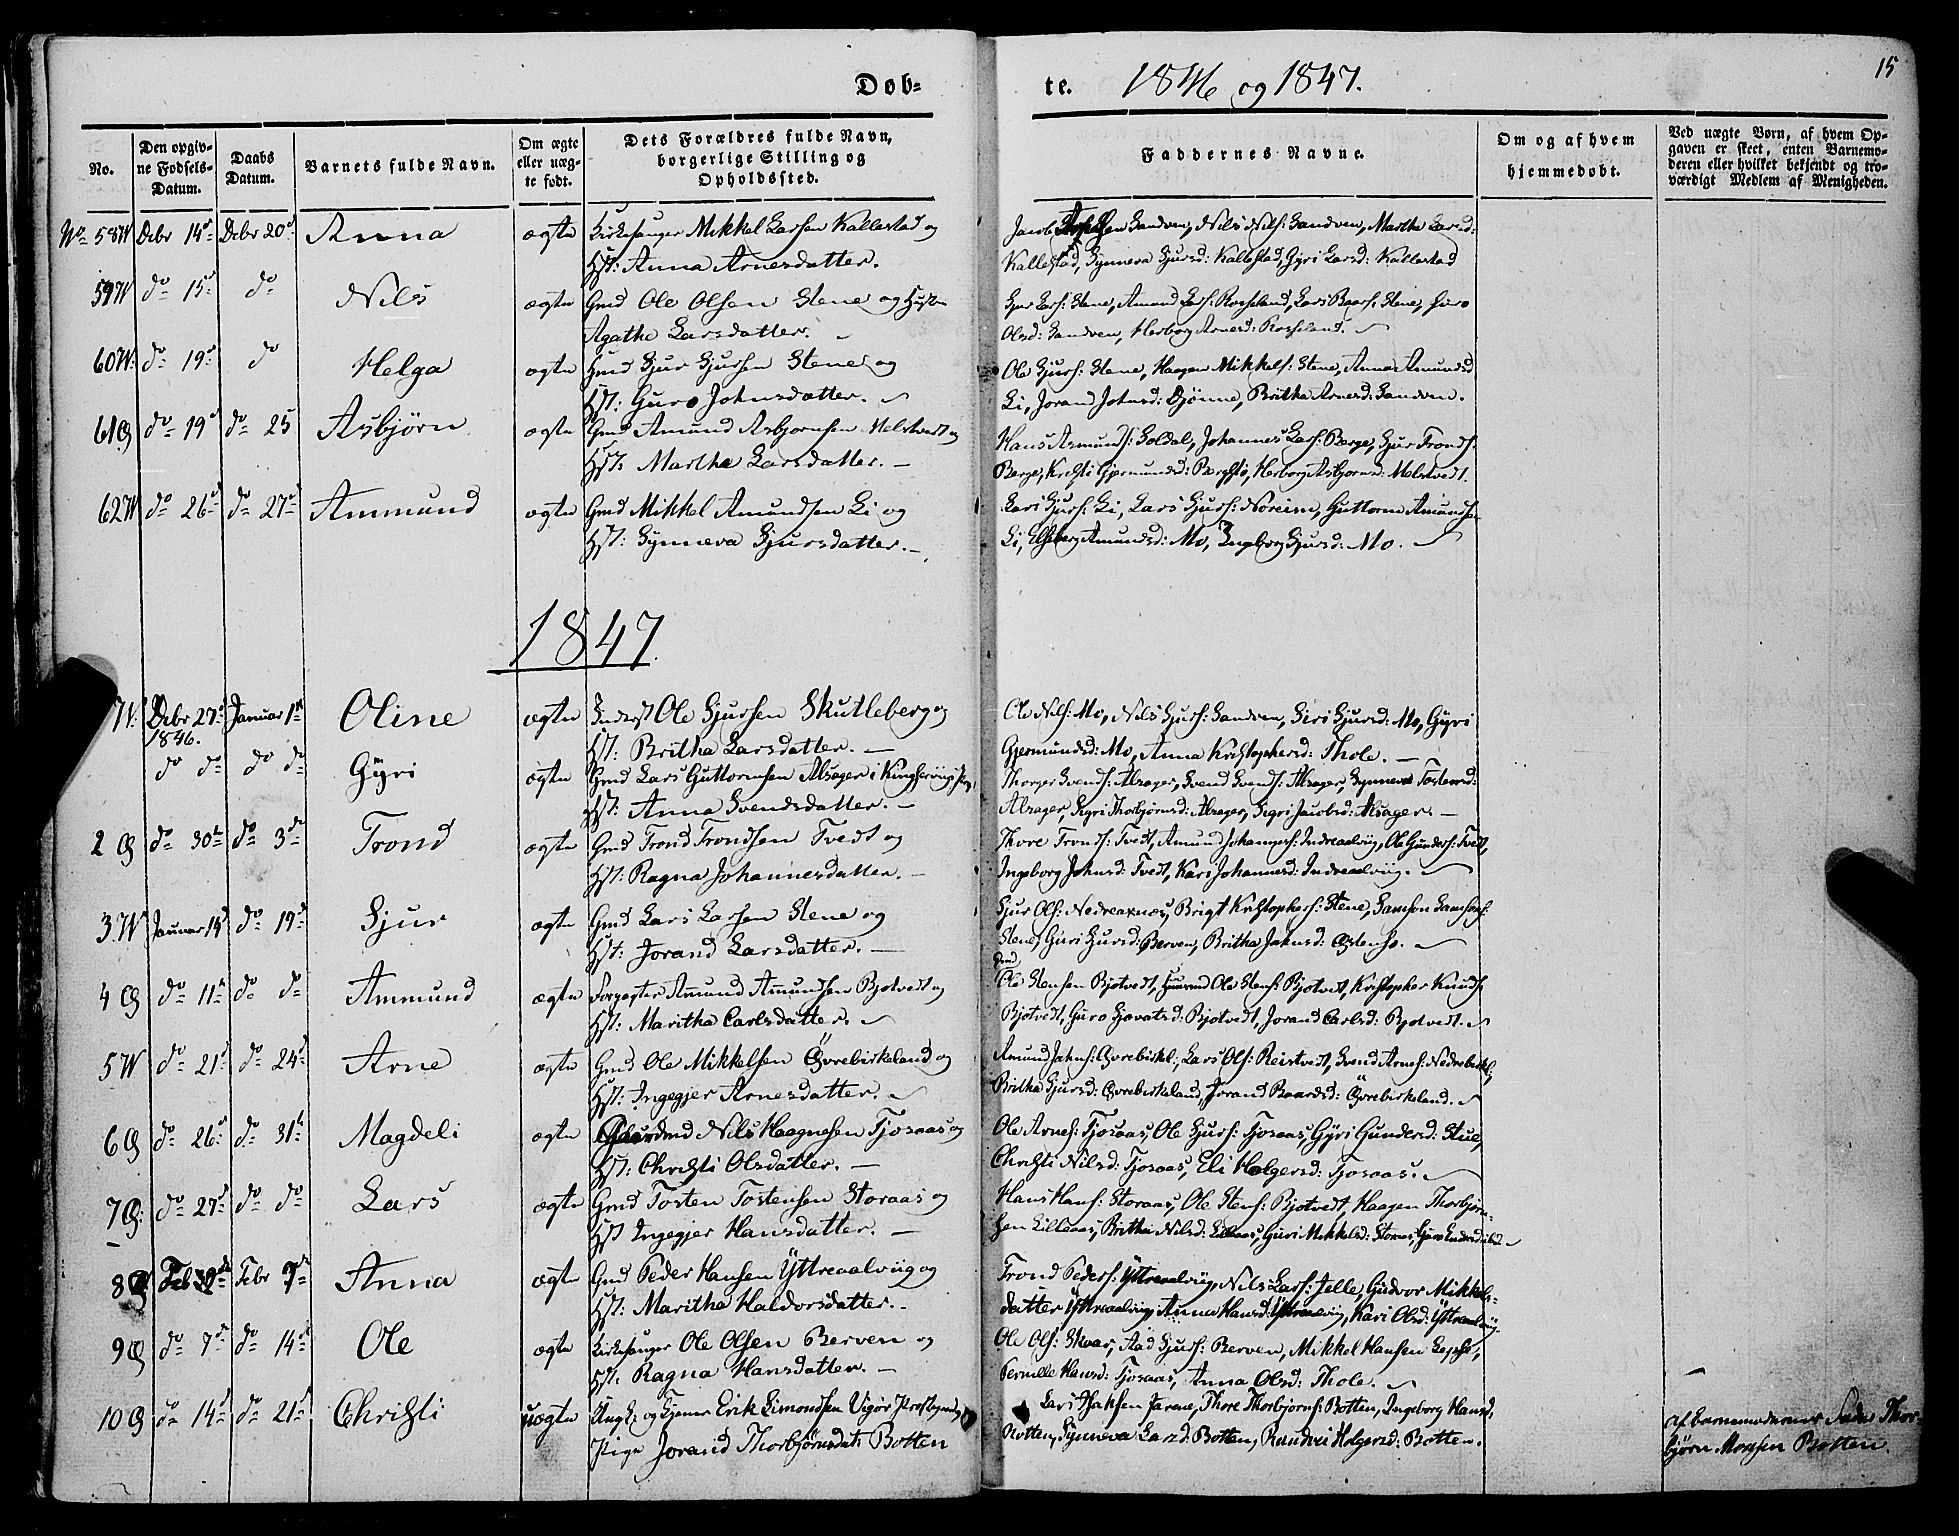 Døb-
te. 1846 og 1847.
15
No.
Den opgiv-
ne Fødsels-
Datum.
Daabs
Datum.
Barnets fulde Navn.
Om ægte
eller uæg-
te født.
Dets Forældres fulde Navn,
borgerlige Stilling og
Opholdssted.
Faddernes Navne.
Om og af hvem
hjemmedøbt.
Ved uægte Børn, af hvem Op-
gaven er skeet, enten Barnemo-
deren eller hvilket bekjendt og tro-
værdigt Medlem af Menigheden.
No 58 W Debr 14 Debr 20 Anna ægte Kirkesanger Mikkel Larsen Kallestad og
Hst: Anna Arnesdatter.
Jacob Sandven, Nils Nils: Sandven, Martha Larsd:
Kallestad, Synneva Sjursd: Kallestad, Gyri Larsd: Kallestad
59 W do 15 do Nils ægte Gmd Ole Olsen Stene og Hustru
Agatha Larsdatter.
Lars: Stene, Amund Lars: Rosseland, Lars Baars: Stene, Guro
Olsd: Sandven, Herborg Arnesd: Rosseland.
60 W do 19 do Helga ægte Gmd Sjur Sjursen Stene og
Hst: Guro Johnsdatter.
Ole Sjurs: Stene, Haagen Mikkels: Stene, Anna Amundsd
Li, Jorand Johnsd: Djönne, Britha Arnesd: Sandven.
61 Ø do 19 do 25 Asbjörn ægte Gmd Amund Asbjornsen Molstvedt og
Hst: Martha Larsdatter.
Hans Asmunds: Soldal, Johannes Lars: Berge, Sjur Tronds:
Berge, Kristi Gjermundsd: Herborg Asbjornsd: Molstvedt.
62 W do 26 do 27 Ammund ægte Gmd Mikkel Amundsen Li og
Hst: Synneva Sjursdatter.
Lars Sjurs: Li, Lars Sjurs: Noreim, Guttorm Amundsen
Li, Elseberg Amundsd: Mo, Ingeborg Sjursd: Mo.
1847
W: Debr 27 Januar 1 Oline ægte Inderst Ole Sjursen Skutleberg og
1846.
Hst: Britha Larsdatter.
Ole Nils: Mo, Nils Sjurs: Sandven, Siri Sjursd: Mo, Gyri
Gjermundsd: Mo, Anna Kristophersd: Thole.
do do do do Gyri ægte Gmd Lars Guttormsen Alsager i Kingservigs Pg,
Hst: Anna Svendsdatter.
Thorger Svends: Alsager, Svend Svends: Alsager, Synneva Tostensd:
Alsager, Sigri Thorbjörnsd: Alsager, Sigri Jacobsd: Alsager.
2 Ø do 30 do 3 Trond ægte Gmd Trond Trondsen Tvedt og
Hst: Ragna Johannesdatter.
Thore Tronds: Tvedt, Amund Johannes: Indreaalviig, Ole Gunders: Tvedt,
Ingeborg Johnsd: Tvedt, Kari Johannesd: Indreaalviig.
3 W Januar 14 do 19 Sjur ægte Gmd Lars Larsen Stene og
Hst: Jorand Larsdatter.
Sjur Ols: Nedreaxnæs, Brigt Kristophers: Stene, Samson Samsons:
Stene, Guri Sjursd: Berven, Britha Johnsd: Østensø.
4 Ø do 11 do do Ammund ægte Forpagter Amund Amundsen Bjotvedt og
Hst: Maritha Carlsdatter.
Gmd
Ole Stensen Bjotvedt, Ole Stens: Bjotvedt, Kristopher Knuds:
Bjotvedt, Guro Sjovatsd: Bjotvedt, Jorand Carlsd: Bjotvedt.
5 W do 21 do 24 Arne ægte Gmd Ole Mikkelsen Øvrebirkeland og
Hst: Ingegjer Arnesdatter.
Amund Johns: Øvrebirkel:, Lars Ols: Reistvedt, Svend Arnes: Nedrebirkel:,
Britha Sjursd: Øvrebirkeland, Jorand Baardsd: Øvrebirkeland.
6 Ø do 26 do 31 Magdeli ægte Nils Haagnesen Tjosaas og
Hst: Christi Olsdatter.
Ole Arnes: Tjosaas, Ole Sjurs: Tjosaas, Gyri Gundersd: Stue,
Christi Nilsd: Tjosaas, Eli Holgersd: Tjosaas.
7 Ø: do 27 do do Lars ægte Gmd Tosten Tostensen Storaas og
Hst Ingegjer Hansdatter.
Hans Hans: Storaas, Ole Stens: Bjotvedt, Haagen Thorbjörn-
sen Lilleaas, Britha Nilsd: Lilleaas, Guri Mikkelsd: Storaas,
8 Ø Feb Febr 7 Anna ægte Gmd Peder Hansen Yttreaalviig og
Hst: Maritha Haldorsdatter.
Trond Peders: Yttreaalviig, Nils Lars: Jelle, Gudvor Mikkels-
datter Yttreaalviig, Anna Hansd: Yttreaalviig, Kari Olsd: Yttreaalviig.
9 Ø do 7 do 14 Ole ægte Kirkesanger Ole Olsen Berven og
Hst: Ragna Hansdatter.
Ole Ols: Skaar, Aad Sjurs: Berven, Mikkel Hansen
Pernille Hansd: Tjosaas, Anna Olsd: Thole.
10 Ø do 14 do 21 Christi uægte Ungk. og Tjener Erik Simondsen Vigör
Pige Jorand Thorbjörnsdatt: Botten
Lars Isaksen Jarene, Thore Thorbjörns: Botten, Ingeborg Hansd,
Botten, Synneva Larsd: Botten, Randvei Holgersd: Botten.
af Barnemoderens Fader Thor-
björn Monsen Botten.